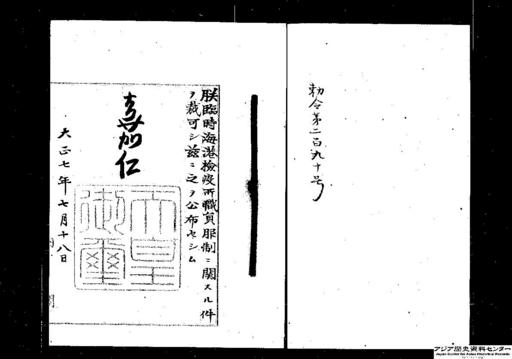 勅令第二百九十号
朕臨時海港檢疫所職員服制ニ關スル件
ヲ裁可シ茲ニ之ヲ公布セシム
嘉仁
天皇
御璽
大正七年七月十八日
アジア歴史資料センター
Japan Center for Asian Historical Records